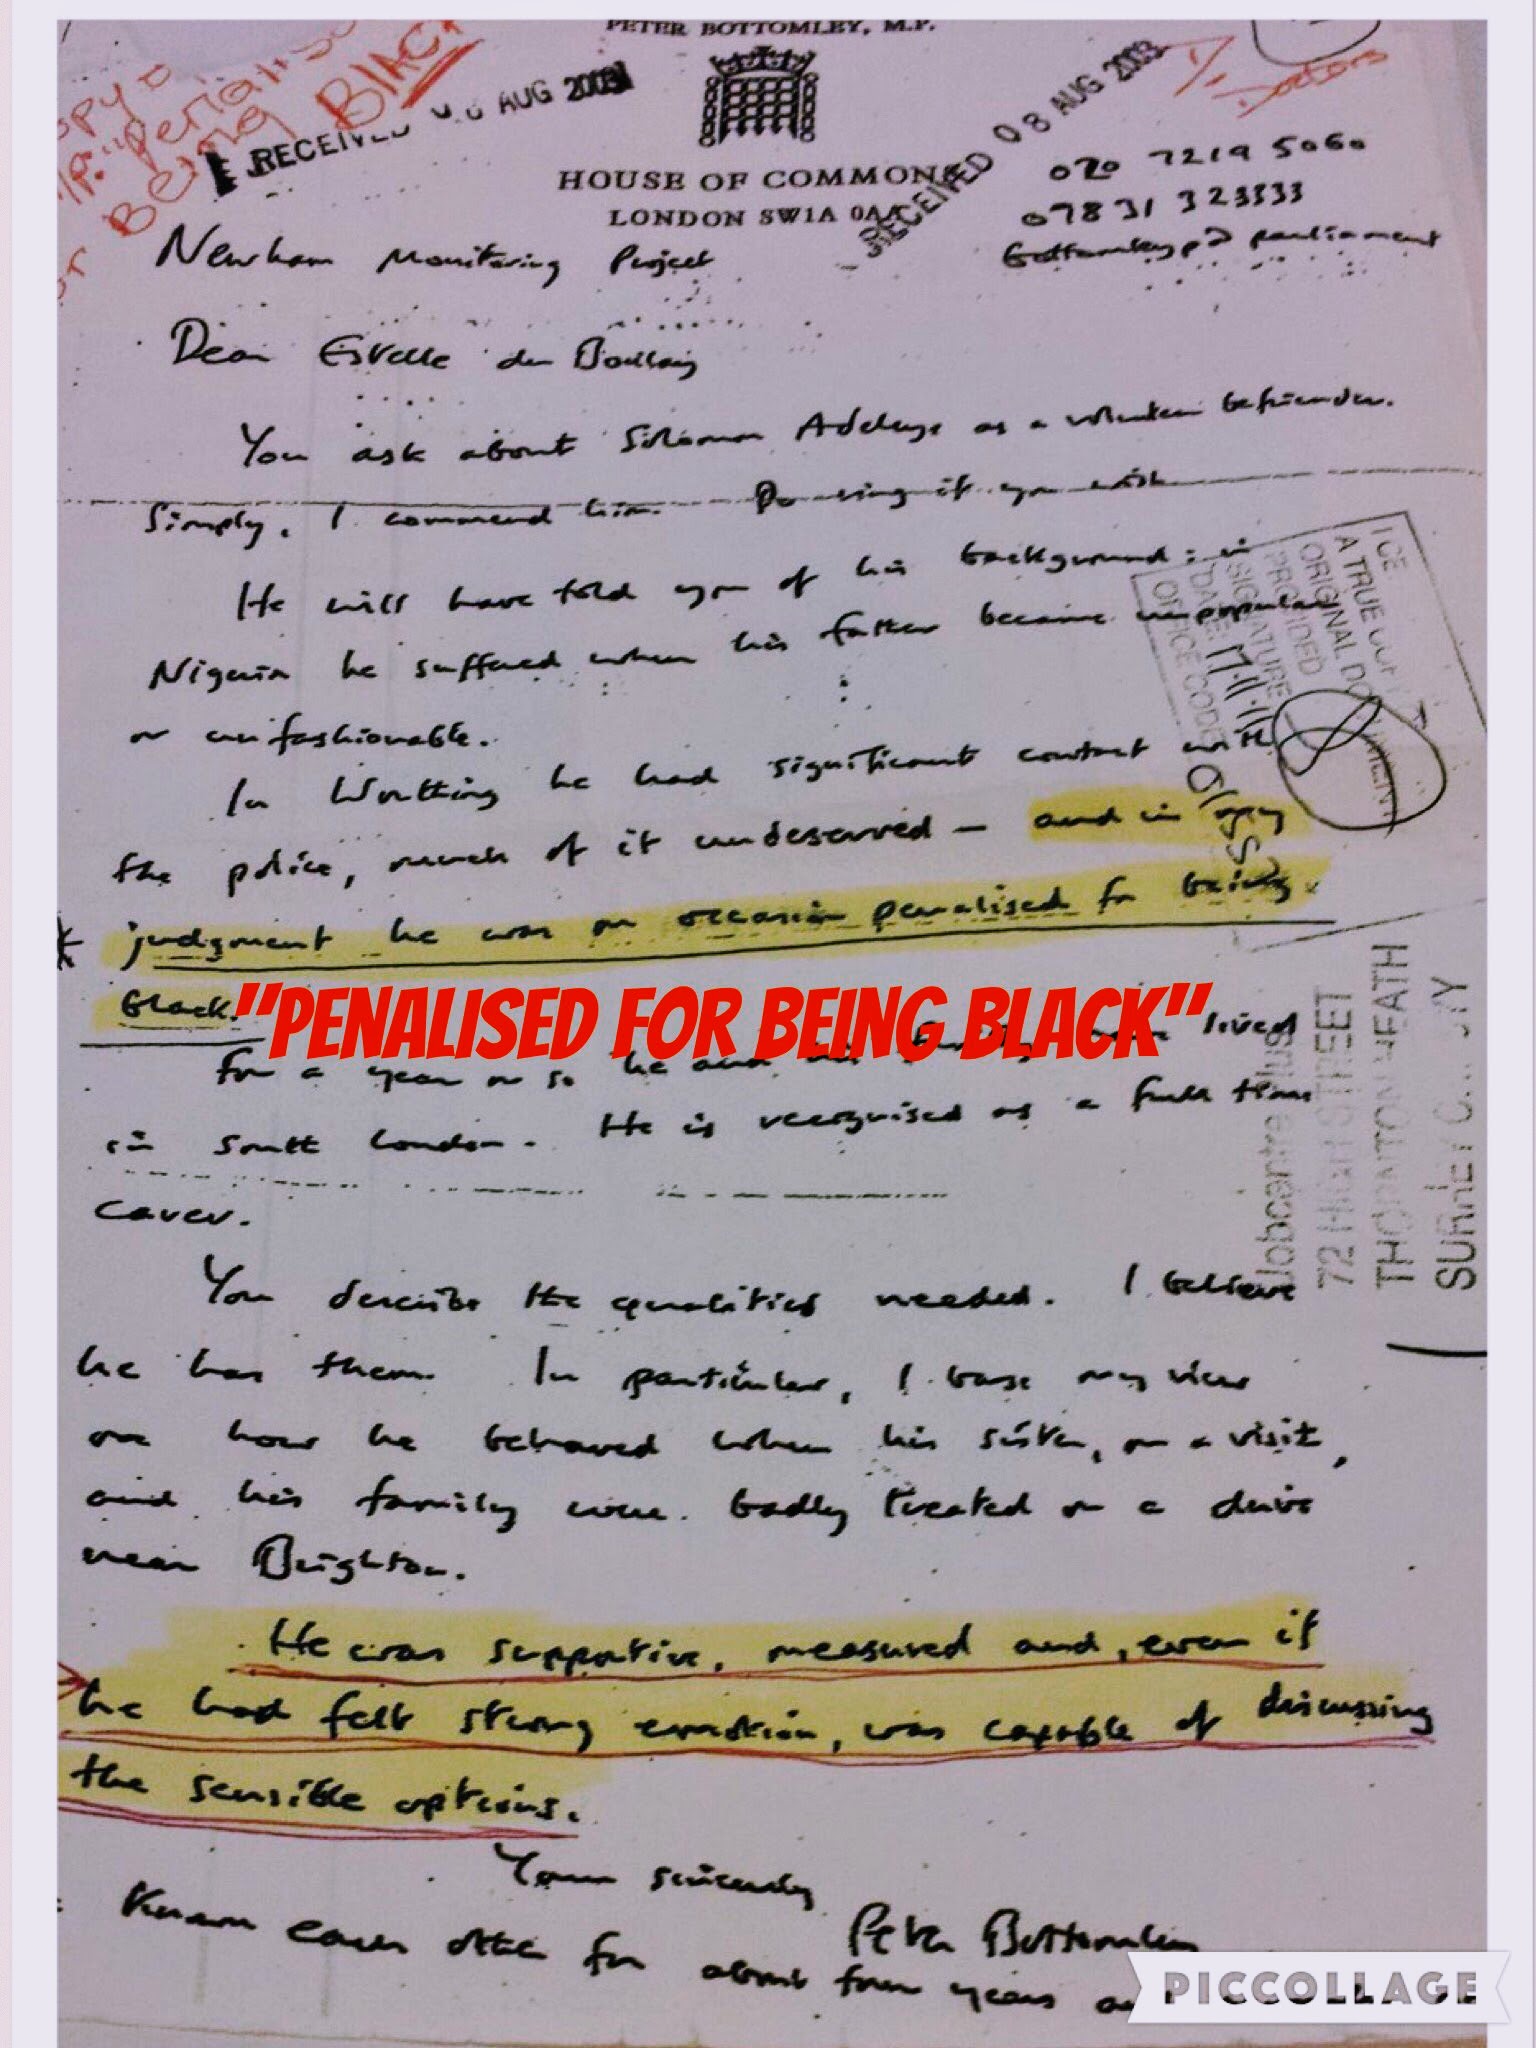 PETER BOTTOMLEY, M.P.
RECEIVED 08 AUG 2003
RECEIVED 08 AUG 2003
HOUSE OF COMMONS
LONDON SW1A 0AA
being BLACK
Doctors
020 7219 5060
07831 323333
bottomleyp@parliament
Newham Monitoring Project
Dear Estelle du
You ask about Solomon as a volunteer befriender.
Simply, I commend him. Do ring if you wish
He will have told you of his background: in
Nigeria he suffered when his father became unpopular
or unfashionable.
In Worthing he had significant contact with
the police, much of it undeserved – and in my
judgment he was on occasion penalised for being
black.
"PENALISED FOR BEING BLACK"
For a year or so he and his family have lived
in south London. He is recognised as a full time
carer.
You describe the qualities needed. I believe
he has them. In particular, I base my view
on how he behaved when his sister, on a visit,
and his family were badly treated on a drive
near Brighton.
He was supportive, measured and, even if
he had felt strong emotion, was capable of discussing
the sensible options.
Yours sincerely
Peter Bottomley
Known each other for about four years
A TRUE
ORIGINAL DOCUMENT
PROVIDED
SIGNATURE
DATE:
OFFICE CODE
Jobcentre Plus
HIGH STREET
THORNTON HEATH
PICCOLLAGE